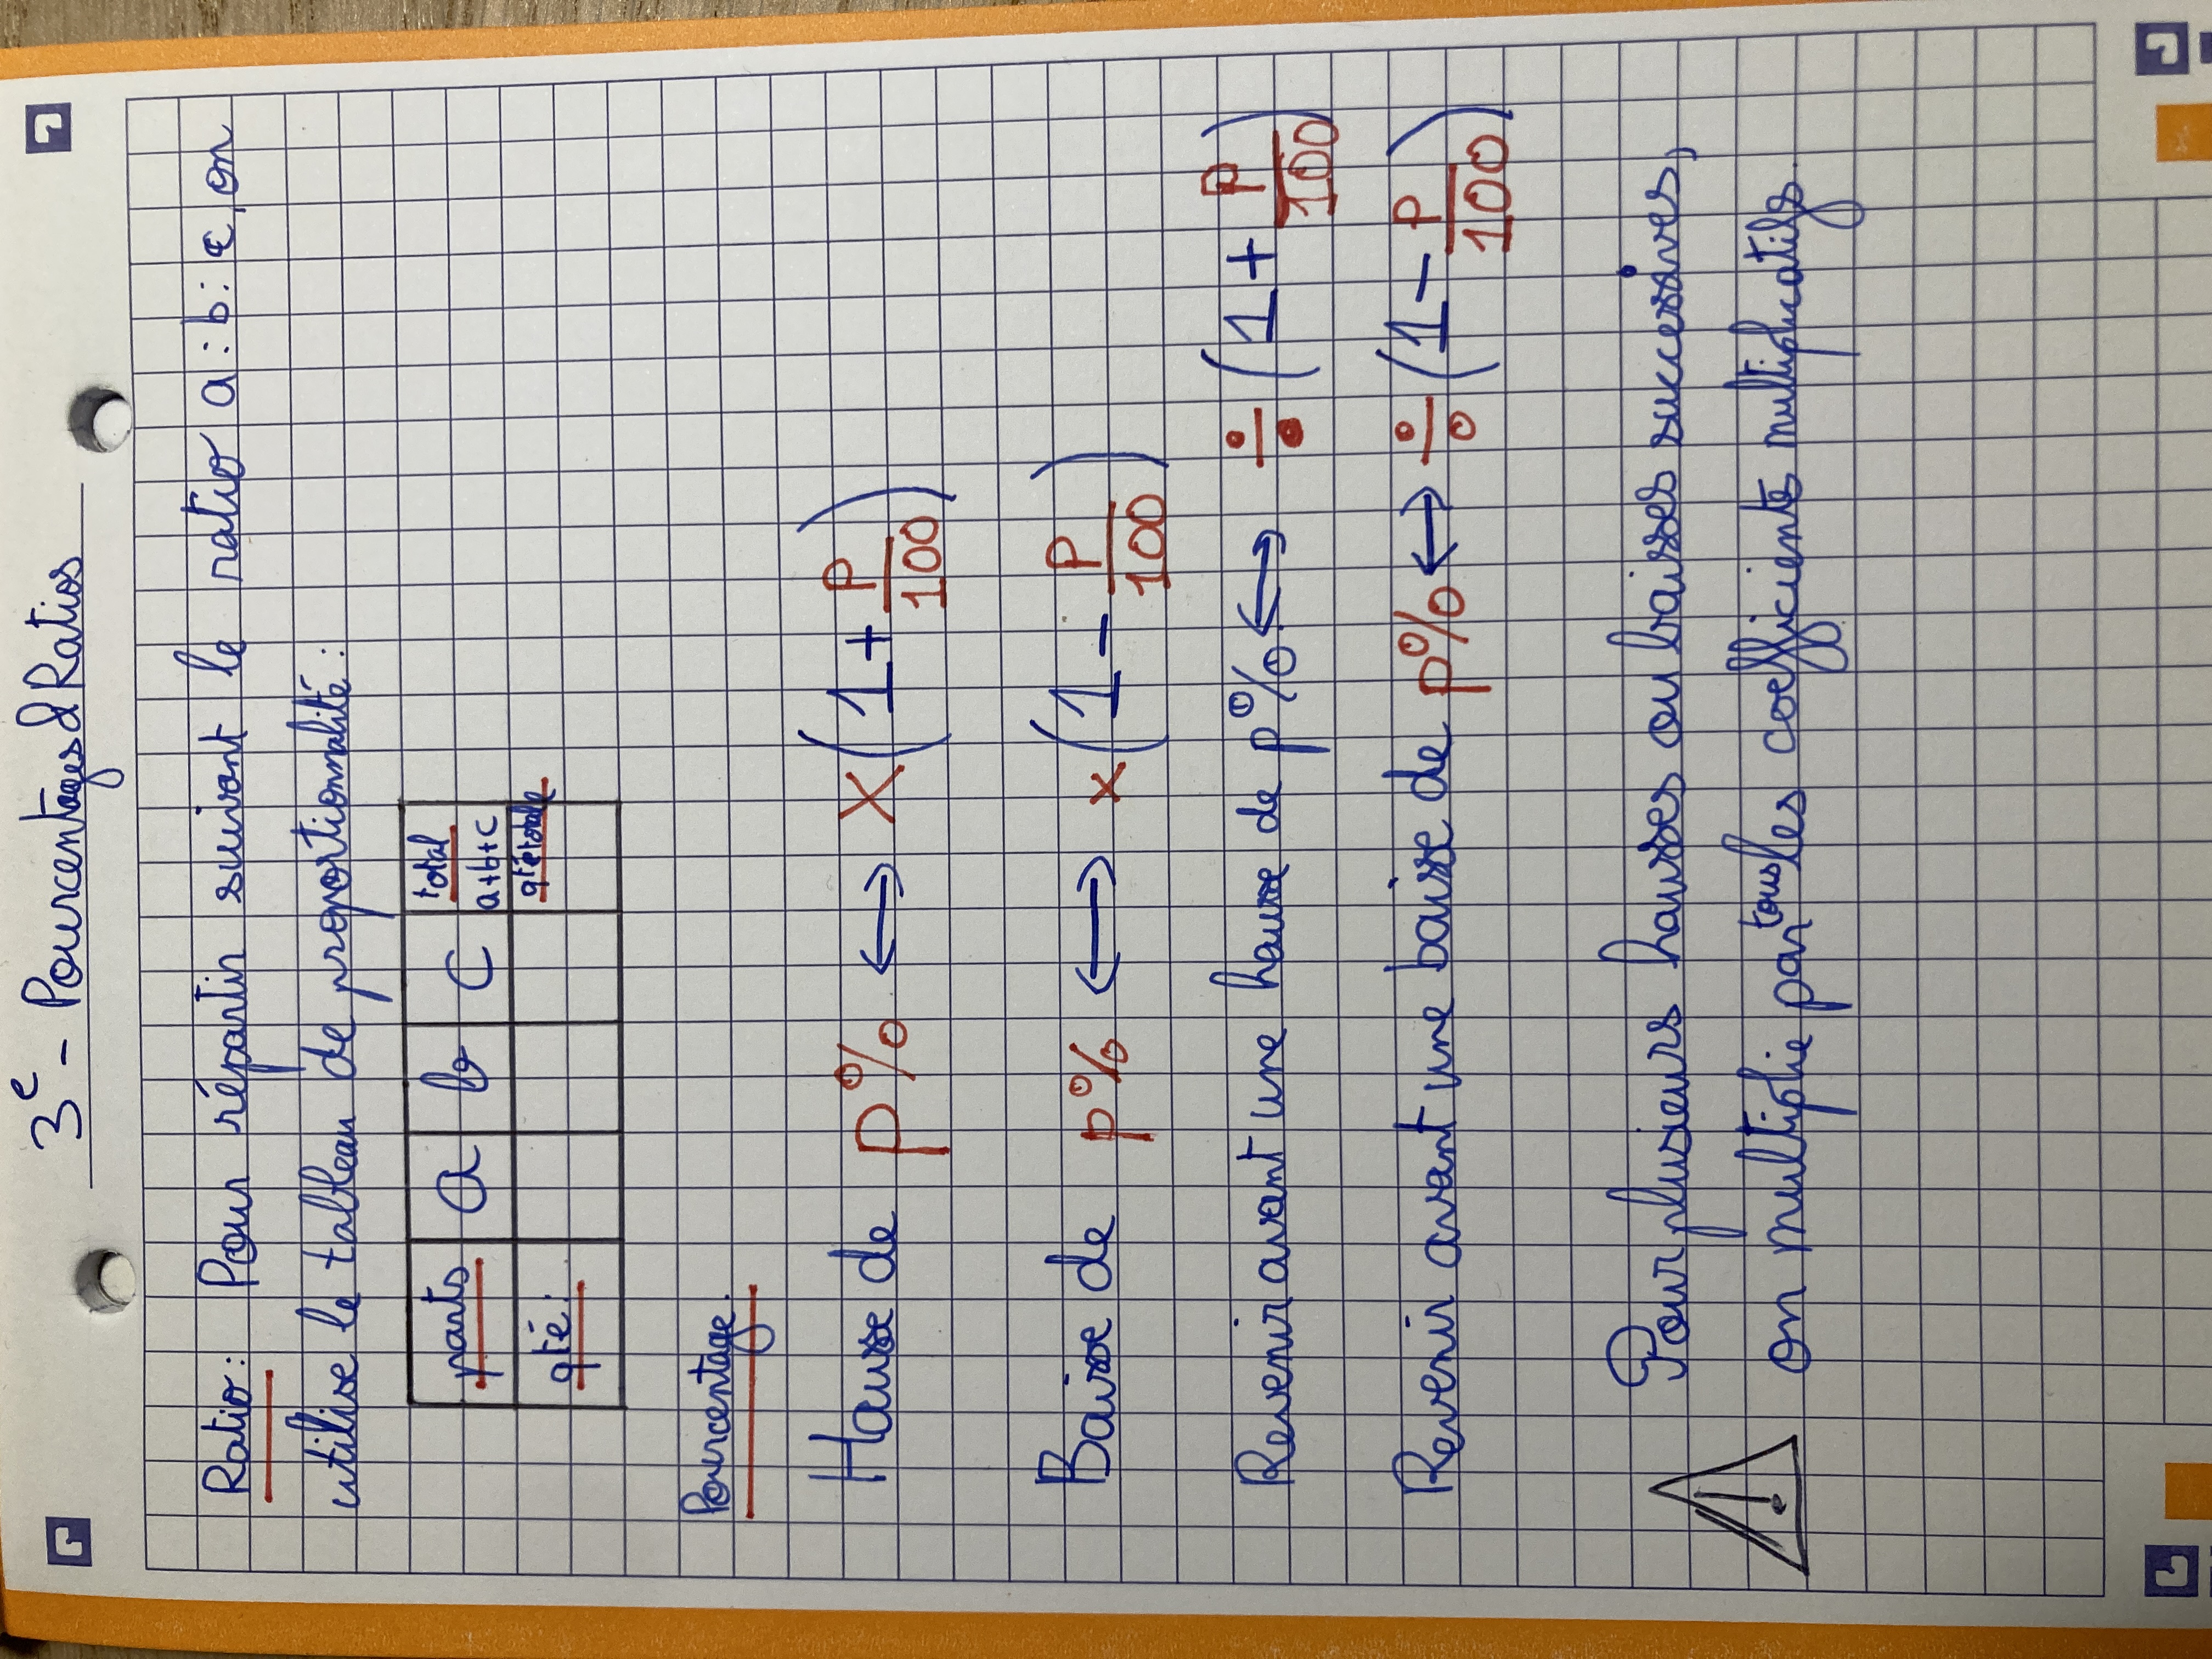 3e - Pourcentages & Ratios
Ratio : Pour répartir suivant le ratio a : b : c, on
utilise le tableau de proportionnalité :
parts a b c total a+b+c
qté : qté totale
Pourcentage.
Hausse de p% ⟷ ×(1 + p/100)
Baisse de p% ⟷ ×(1 - p/100)
Revenir avant une hausse de p% ⟷ ÷(1 + p/100)
Revenir avant une baisse de p% ⟷ ÷(1 - p/100)
! Pour plusieurs hausses ou baisses successives,
on multiplie par tous les coefficients multiplicatifs.